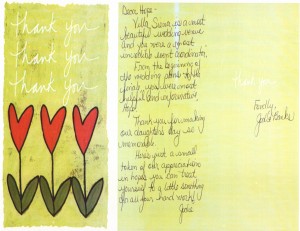 Thank you
Thank you
Thank you
Dear Hope -
Villa Siena is a most
beautiful wedding venue
and you were a most
event coordinator.
From the beginning of
the
you were most
helpful and informative,
Hope.
Thank you for making
our daughter's day so
memorable.
Here's just a small
token of our appreciation
in hopes you can treat
yourself to a little something
for all your hard work!
Fondly,